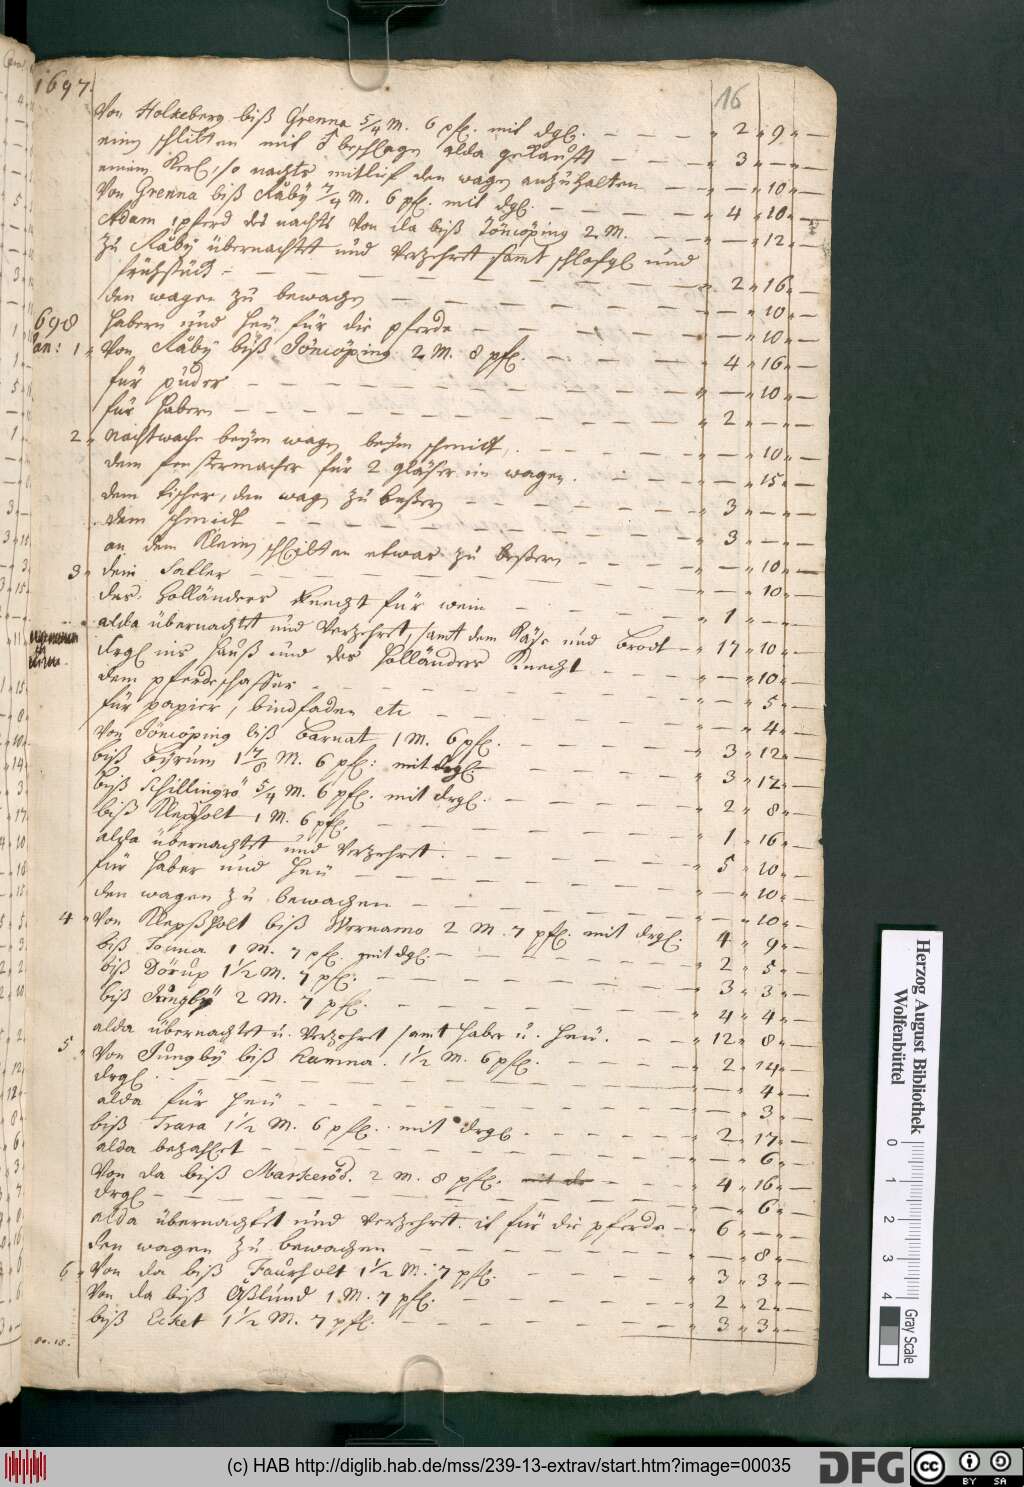 1697.
16
Von Holkeberg biß Grenna 5/4 M. 6 pf. mit dgl. — — — " 2 " 9 " —
einen schlitten mit beschlagen alda gekaufft — — — " 3 " — " —
einem Kerl, so nachts mitlief den wagen anzuhalten — " — " 10 " —
Von Grenna biß Råby 7/4 M. 6 pf. mit dgl. — — — " 4 " 10 " —
Adam 1 pferd des nachts Von da biß Jöncöping 2 M. — " — " 12 " —
Zu Råby übernachtet und Verzehret samt schlafgl und
frühstück — — — " 2 " 16 " —
den wagen zu bewachen — — — " — " 10 " —
1698
habern und heu für die pferde — — — " — " 10 " —
Jan: 1 " Von Råby biß Jöncöping 2 M. 8 pf. — — — " 4 " 16 " —
für puder — — — " — " 10 " —
für habern — — — " 2 " — " —
2 " Nachtwache beym wagen beym schmidt. — — — " — " 10 " —
dem fenstermacher für 2 gläser im wagen. — — — " — " 15 " —
dem tischer, den wagen zu beßern — — — " 3 " — " —
dem schmidt — — — " 3 " — " —
an dem kleinen schlitten etwas zu beßern — — — " — " 10 " —
3 " dem Satler — — — " — " 10 " —
des Holländers Knecht für wein — — — " 1 " — " —
alda übernachtet und Verzehret, samt dem Käse und Brodt — " 17 " 10 " —
drgl ins hauß und des Holländers Knecht — — — " — " 10 " —
dem pferdeschaffer — — — " — " 5 " —
für papier, bindfaden etc — — — " — " 4 " —
Von Jöncöping biß Barnat 1 M. 6 pf. — — — " 3 " 12 " —
biß Byrum 1 7/8 M. 6 pf: mit drgl — — — " 3 " 12 " —
biß Schillingrö 5/4 M. 6 pf. mit drgl. — — — " 2 " 8 " —
biß Klepsholt 1 M. 6 pf. — — — " 1 " 16 " —
alda übernachtet und Verzehret. — — — " 5 " 10 " —
für haber und heu — — — " — " 10 " —
den wagen zu bewachen — — — " — " 10 " —
4 " Von Klepßholt biß Wernamo 2 M. 7 pf. mit drgl. " 4 " 9 " —
biß Tonna 1 M. 7 pf. mit dgl. — — — " 2 " 5 " —
biß Dörup 1 1/2 M. 7 pf. — — — " 3 " 3 " —
biß Jungby 2 M. 7 pf. — — — " 4 " 4 " —
alda übernachtet u. Verzehret samt haber u. heu. — — — " 12 " 8 " —
5 " Von Jungby biß Ramna. 1 1/2 M. 6 pf. — — — " 2 " 14 " —
drgl. — — — " — " 4 " —
alda für heu — — — " — " 3 " —
biß Trara 1 1/2 M. 6 pf. mit drgl. — — — " 2 " 17 " —
alda bezahlet — — — " — " 6 " —
Von da biß Markeröd. 2 M. 8 pf. — — — " 4 " 16 " —
drgl — — — " — " 6 " —
alda übernachtet und Verzehret. it für die pferde — " 6 " — " —
den wagen zu bewachen — — — " — " 8 " —
6 " Von da biß Faurholt 1 1/2 M. 7 pf. — — — " 3 " 3 " —
Von da biß Åßlund 1 M. 7 pf. — — — " 2 " 2 " —
biß Ecket 1 1/2 M. 7 pf. — — — " 3 " 3 " —
Herzog August Bibliothek
Wolfenbüttel
0 1 2 3 4
Gray Scale
(c) HAB http://diglib.hab.de/mss/239-13-extrav/start.htm?image=00035
DFG
cc BY SA